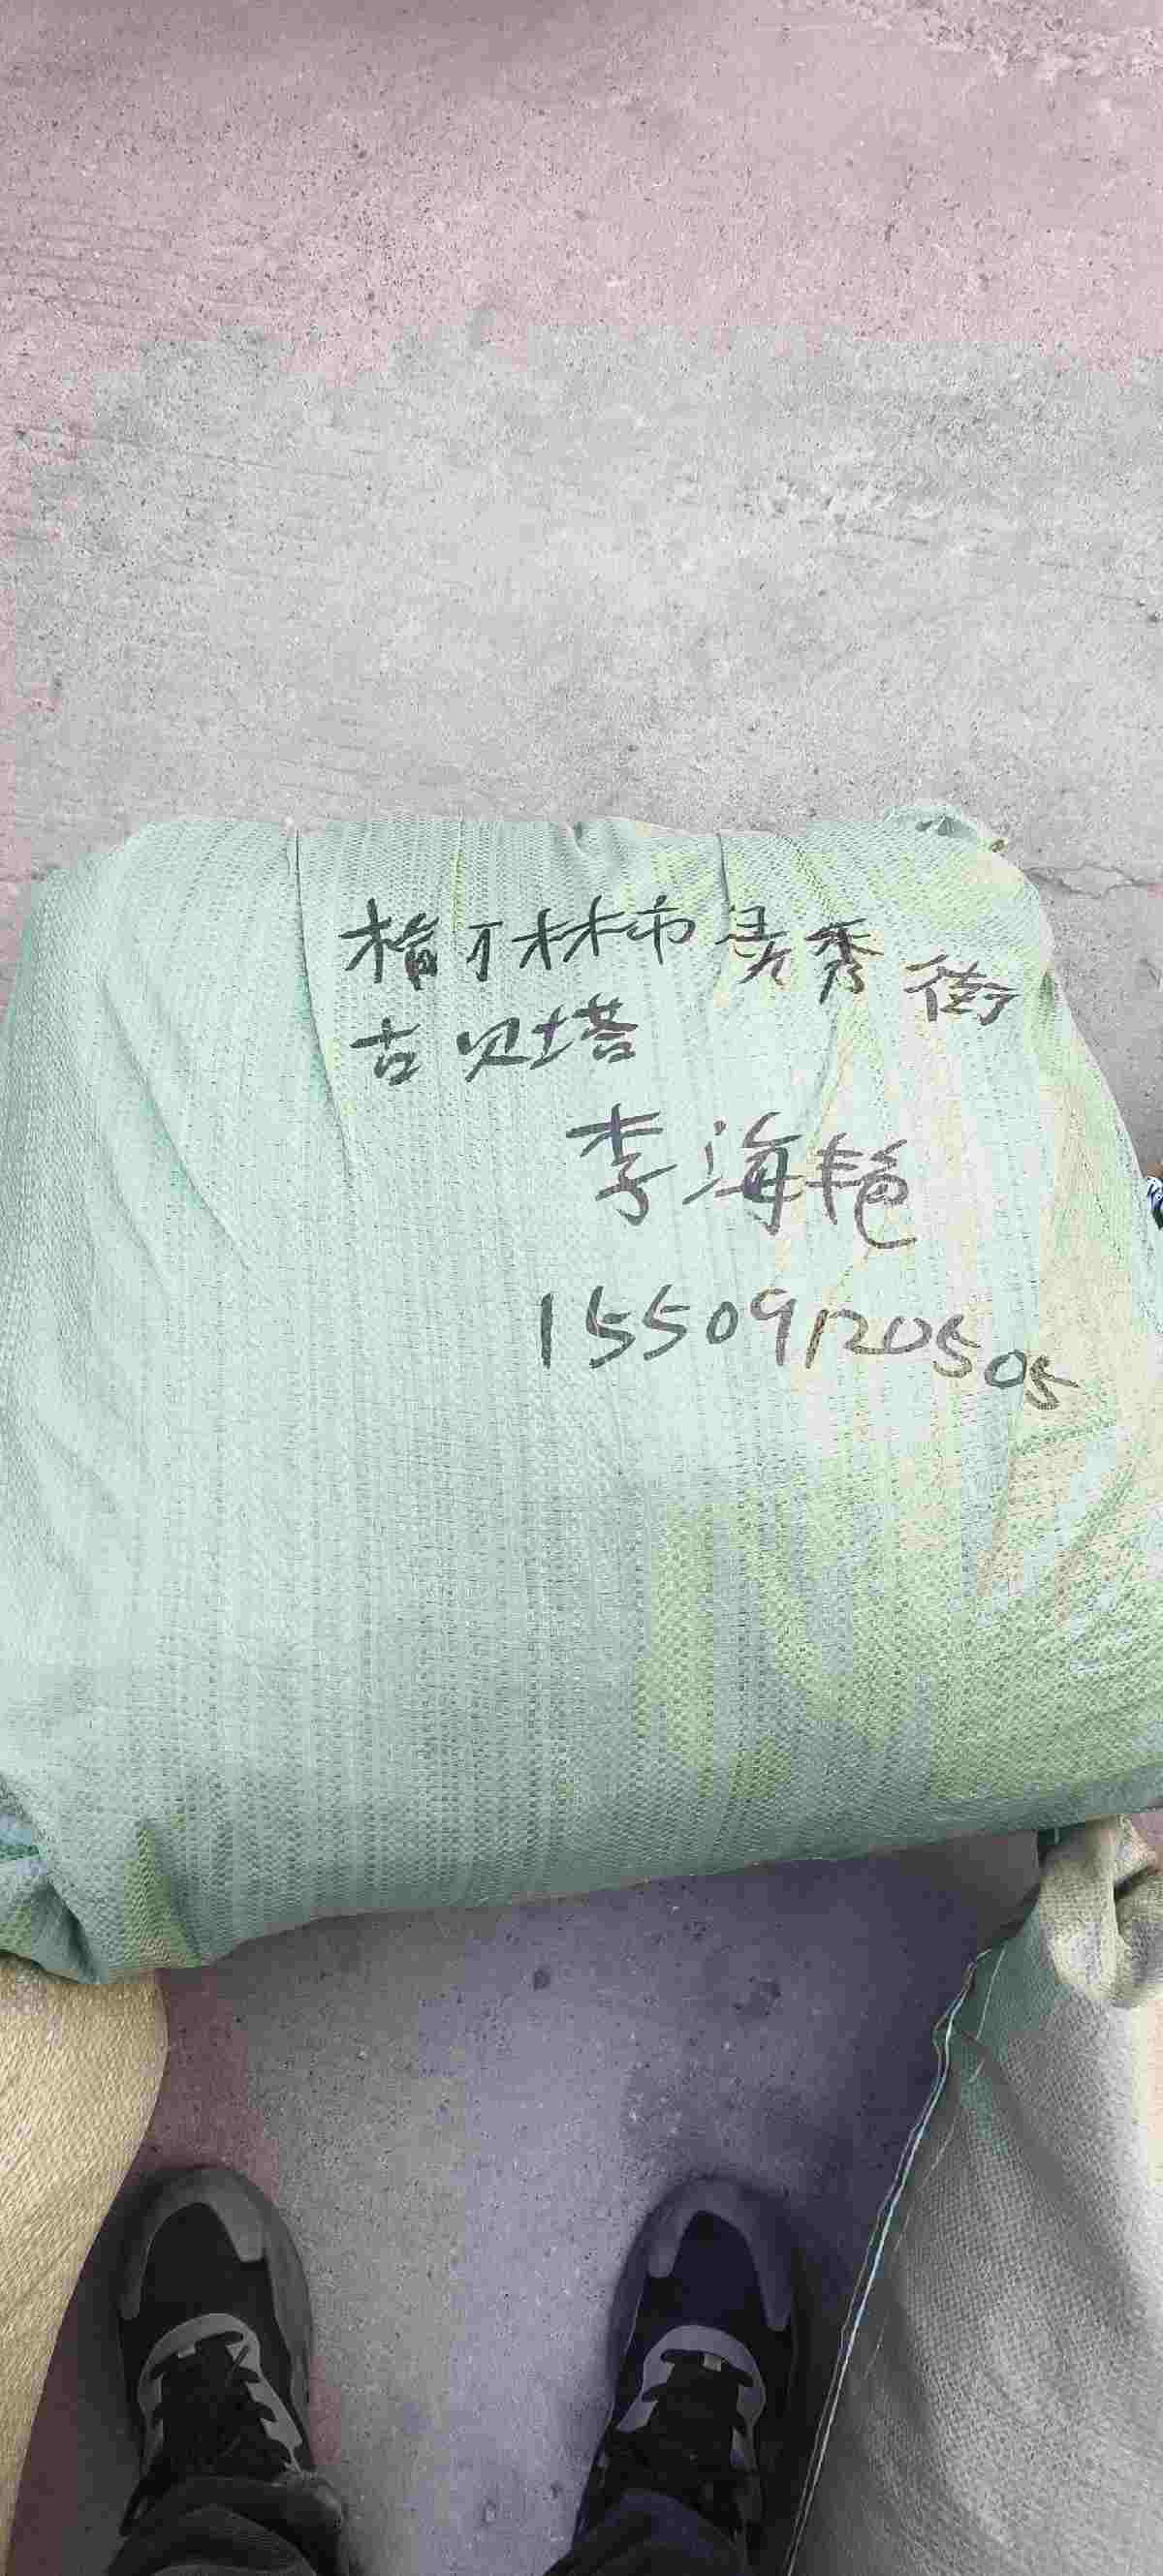 榆林市秀街
古贝塔
李海艳
15509120505